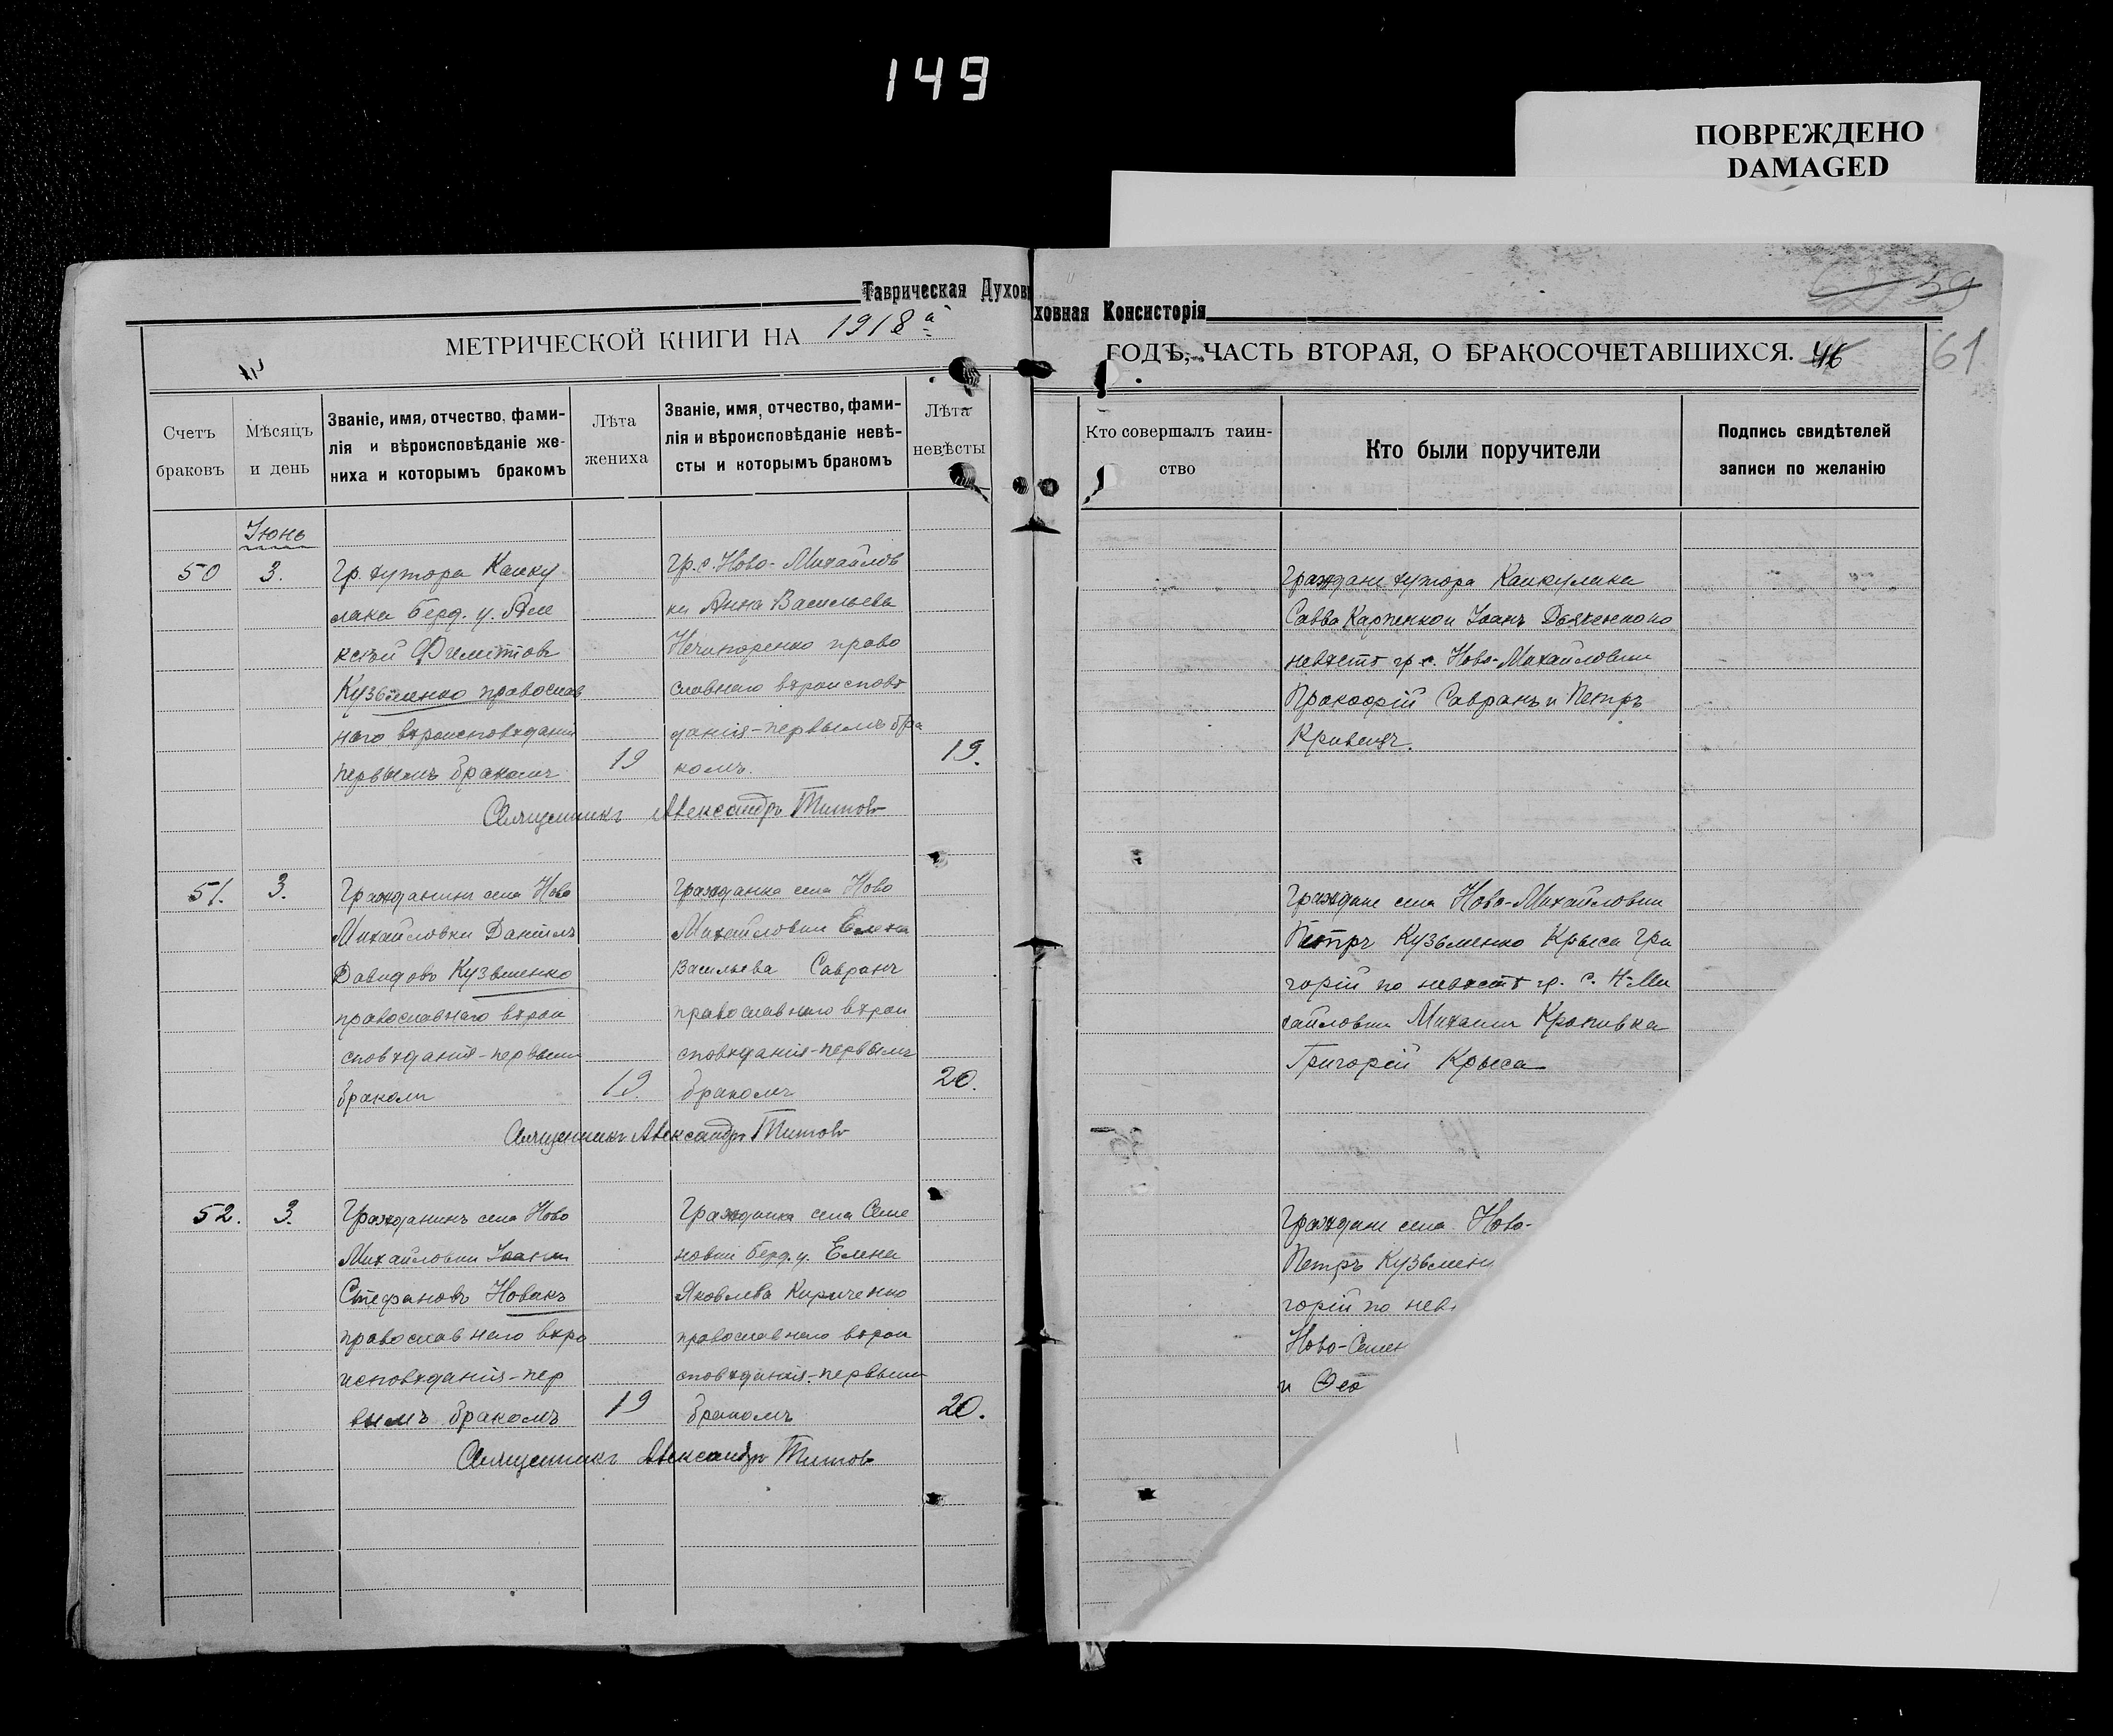 149
ПОВРЕЖДЕНО
DAMAGED
Таврическая Духов
ховная Консисторія
59
МЕТРИЧЕСКОЙ КНИГИ НА 1918 а
ГОДЪ, ЧАСТЬ ВТОРАЯ, О БРАКОСОЧЕТАВШИХСЯ. 46
61
Счетъ браковъ
Мѣсяцъ и день
Званіе, имя, отчество, фами-
лія и вѣроисповѣданіе же-
ниха и которымъ бракомъ
Лѣта жениха
Званіе, имя, отчество, фами-
лія и вѣроисповѣданіе невѣ-
сты и которымъ бракомъ
Лѣта невѣсты
Кто совершалъ таин-
ство
Кто были поручители
Подпись свидѣтелей
записи по желанію
Іюнь
50
3.
Гр. хутора Каику
лака берд. у. Але
ксѣй
Кузьменко православ
наго вѣроисповѣданія
первымъ бракомъ
19
Гр. с. Ново-Михайлов
ки Анна Васильева
Нечипоренко право
славнаго вѣроисповѣ
данія-первымъ бра
комъ.
19.
Граждане хутора Каикулака
Савва Карпенко и Іоанъ по
невѣстѣ гр. с. Ново-Михайловки
Прокофій Савранъ и Петръ
Кривецъ.
Священникъ Александръ Титовъ
51.
3.
Гражданинъ села Ново
Михайловки Даніилъ
Давидовъ Кузьменко
православнаго вѣрои
сповѣданія-первымъ
бракомъ
19.
Гражданка села Ново
Михайловки Елена
Васильева Савранъ
православнаго вѣрои
сповѣданія-первымъ
бракомъ
20.
Граждане села Ново-Михайловки
Петръ Кузьменко Крыса Гри
горій по невѣстѣ гр. с. Н-Ми
хайловки Михаилъ Кропивка
Григорій Крыса
Священникъ Александръ Титовъ
52.
3.
Гражданинъ села Ново
Михайловки Іоаннъ
Стефановъ Новакъ
православнаго вѣро
исповѣданія-пер
вымъ бракомъ
19
Гражданка села Семе
новки берд. у. Елена
Яковлева Кириченко
православнаго вѣрои
сповѣданія-первымъ
бракомъ
20.
Граждане села Ново-
Петръ Кузьмен
горій по невѣ
Ново-Семен
и Ѳео
Священникъ Александръ Титовъ